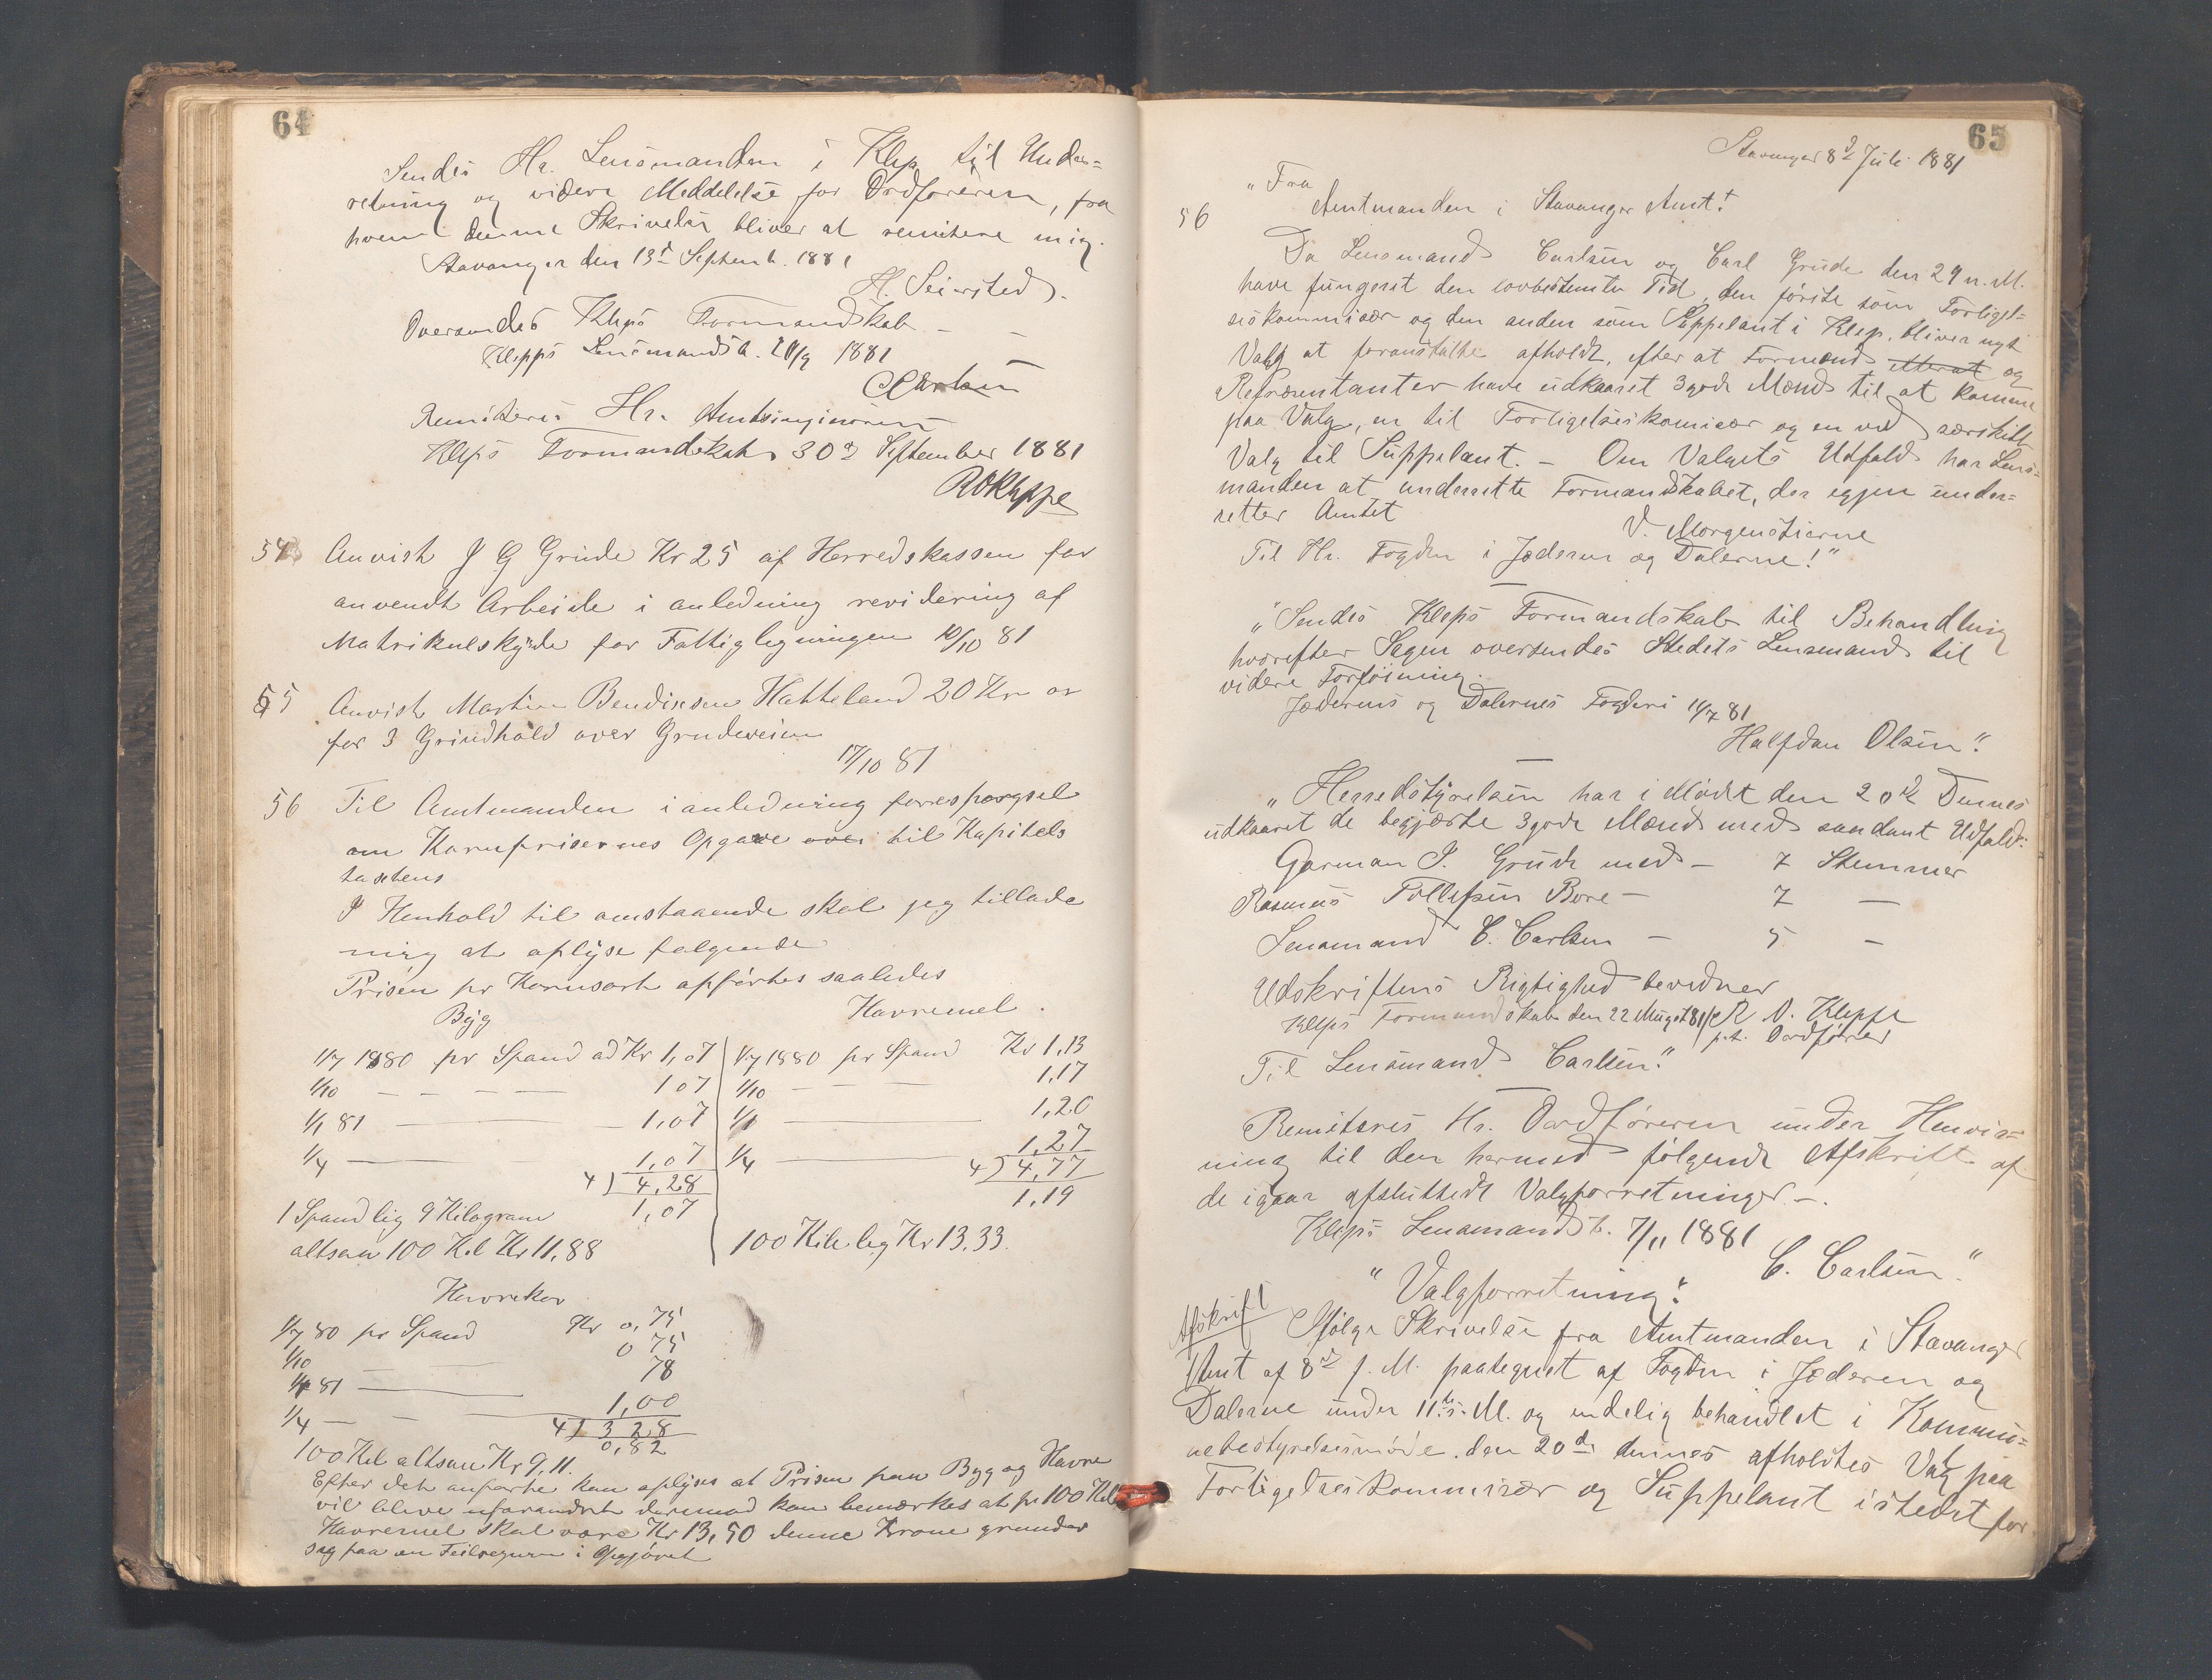 64
Sendes Hr. Lensmanden i Klep til Under=
retning og videre Meddelelse for Ordføreren, fra
hvem denne Skrivelse bliver at remitere mig.
Stavanger den 13d Septemb. 1881
H. Seiersted.
Oversendes Kleps Formandskab
Klepps Lensmandsb. 20/9 1881
C Carlsen
Remiteres Hr. Amtsingeniøren
Kleps Formandskab 30d September 1881
R O Kleppe
54 Anvist J G Grude Kr 25 af Herredskassen for
anvendt Arbeide i anledning revidering af
Matrikulskylde for Fattigligningen 10/10 81
55 Anvist Martin Bendiksen Hatteland 20 Kr
for 3 Grindhold over Grudeveien
17/10 81
56 Til Amtmanden i anledning forespørgsel
om Kornprisernes Opgave over til Kapitels
taxtens
I Henhold til omstaaende skal jeg tillade
mig at oplyse følgende
Prisen pr Kornsort opførtes saaledes
Byg Havremel
1/7 1880 pr Spand ad Kr 1,07 1/7 1880 pr Spand Kr 1,13
1/10 — — — 107 1/10 — — — 1,17
1/1 81 — — 1,07 1/1 — 1,20
1/4 — 1,07 1/4 — 1,27
4) 4,28 4) 4,77
1 Spand lig 9 Kilogram 1,07 1,19
altsaa 100 Kil Kr 11,88 100 Kilo lig Kr 13,33.
Havrekor
1/7 80 pr Spand Kr 0,75
1/10 — — 0 75
1/1 81 — 78
1/4 — — 1,00
4) 3 28
0,82
100 Kil altsaa Kr 9,11.
Efter det anførte kan oplyses at Prisen paa Byg og Havre
vil blive uforandret derimod kan bemærkes at pr 100 Kilo
Havremel skal være Kr 13,50 denne Krone grunder
sig paa en Feilregning i Opgjøret
65
Stavanger 8d Juli 1881
"Fra
56 Amtmanden i Stavanger Amt!
Da Lensmand Carlsen og Carl Grude den 29 n. M.
have fungeret den lovbestemte Tid, den første som Forligel=
seskommisær og den anden som Suppelant i Klep, bliver nyt
Valg at foranstalte afholdt, efter at Formænd etterat og
Repræsentanter have udkaaret 3 gode Mænd til at komme
paa Valg, en til Forligelseskomisær og en ved særskilt
Valg til Suppelant. — Om Valgets Udfald har Lens=
manden at underrette Formandskabet, der igjen under=
retter Amtet
V. Morgenstierne
Til Hr. Fogden i Jæderen og Dalerne!"
"Sendes Kleps Formandskab til Behandling
hvorefter Sagen oversendes Stedets Lensmand til
videre Forføining.
Jæderens og Dalernes Fogderi 11/7 81
Halfdan Olsen".
"Herredstyrelsen har i Mødet den 20de Dennes
udkaaret de begjærte 3 gode Mænd med saadant Udfald:
Garman P. Grude med — 7 Stemmer
Rasmus Tollefsen Bore — 7 —
Lensmand C. Carlsen — 5 —
Udskriftens Rigtighed bevidner
Kleps Formandskab den 22 August 81 R O. Kleppe
p.t. Ordfører
Til Lensmand Carlsen."
Remiteres Hr. Ordføreren under Henvis=
ning til den hermed følgende Afskrift af
de igaar afsluttede Valgforretninger —.
Kleps Lensmandsb. 7/11 1881
C. Carlsen"
"Valgforretning."
Afskrift Ifølge Skrivelse fra Amtmanden i Stavanger
Amt af 8d f. M. paategnet af Fogden i Jæderen og
Dalerne under 11te s. M. og endelig behandlet i Kommu=
nebestyrelsesmøde den 20de dennes afholdtes Valg paa
Forligelseskommisær og Suppelant istedet for